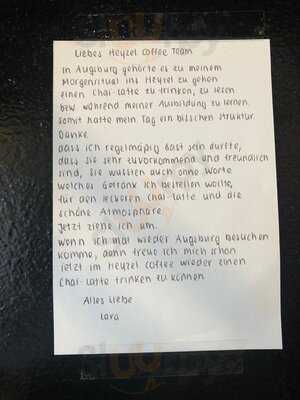 Liebes Heyzel Coffee Team
In Augsburg gehörte es zu meinem
Morgenritual ins Heyzel zu gehen
einen Chai-Latte zu trinken, zu lesen
bzw während meiner Ausbildung zu lernen.
Somit hatte mein Tag ein bisschen Struktur.
Danke
dass ich regelmäßig Gast sein durfte,
dass sie sehr zuvorkommend und freundlich
sind, Sie wussten auch ohne Worte
welches Getränk ich bestellen wollte,
für den leckeren Chai-Latte und die
schöne Atmosphäre
Jetzt ziehe ich um.
Wenn ich mal wieder Augsburg besuchen
komme, dann freue ich mich schon
jetzt im Heyzel Coffee wieder einen
Chai-Latte trinken zu können
Alles Liebe
Lara